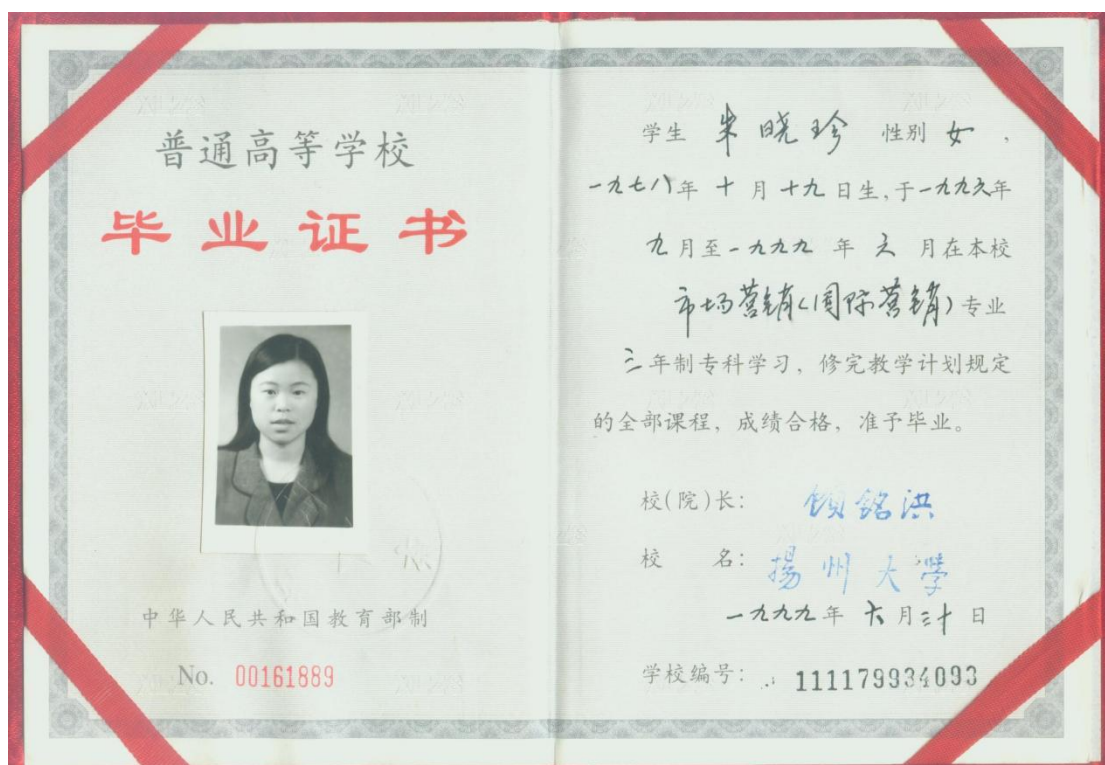 普通高等学校
毕业证书
中华人民共和国教育部制
No. 00161889
学生 朱晓珍 性别 女，
一九七八年 十 月 十九 日生，于一九九六年
九月至一九九九 年 六 月在本校
市场营销（国际营销）专业
三年制专科学习，修完教学计划规定
的全部课程，成绩合格，准予毕业。
校(院)长： 顾铭洪
校 名： 揚州大学
一九九九年 六月三十日
学校编号： 111179934093